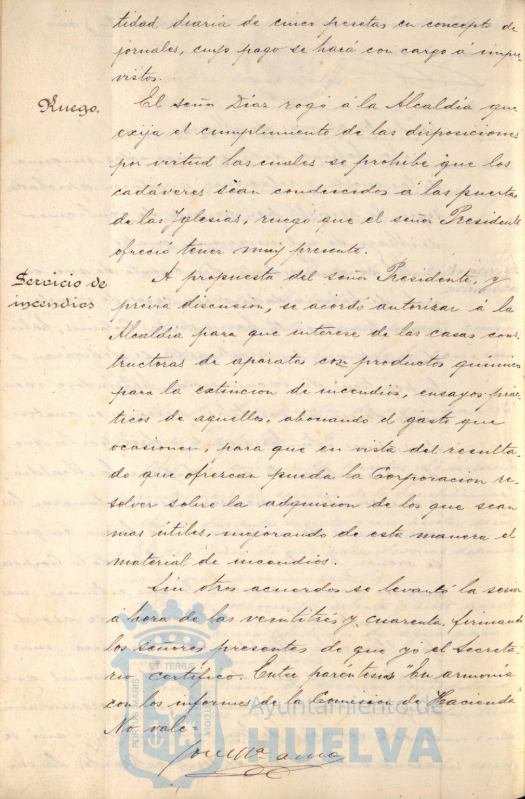 tidad diaria de cinco pesetas en concepto de
jornales, cuyo pago se hará con cargo á impre-
vistos.
Ruego.
El señor Díaz rogó á la Alcaldía que
exija el cumplimiento de las disposiciones
por virtud las cuales se prohibe que los
cadáveres sean conducidos á las puertas
de las Iglesias, ruego que el señor Presidente
ofreció tener muy presente.
Servicio de
incendios
A propuesta del señor Presidente, y
prévia discusión, se acordó autorizar á la
Alcaldía para que interese de las casas cons-
tructoras de aparatos con productos químicos
para la extinción de incendios, ensayos prác-
ticos de aquellos, abonando el gasto que
ocasionen, para que en vista del resulta-
do que ofrezcan pueda la Corporación re-
solver sobre la adquision de los que sean
mas útiles, mejorando de esta manera el
material de incendios.
Sin otros acuerdos se levantó la sesión
a hora de las veintitrés y cuarenta, firmando
los señores presentes de que yo el Secreta-
rio certifico. Entre paréntesis "En armonía
con los informes de la Comisión de Hacienda
No vale.
PORTUS MARIS
ET TERRÆ
CUSTODIA
Ayuntamiento de
HUELVA